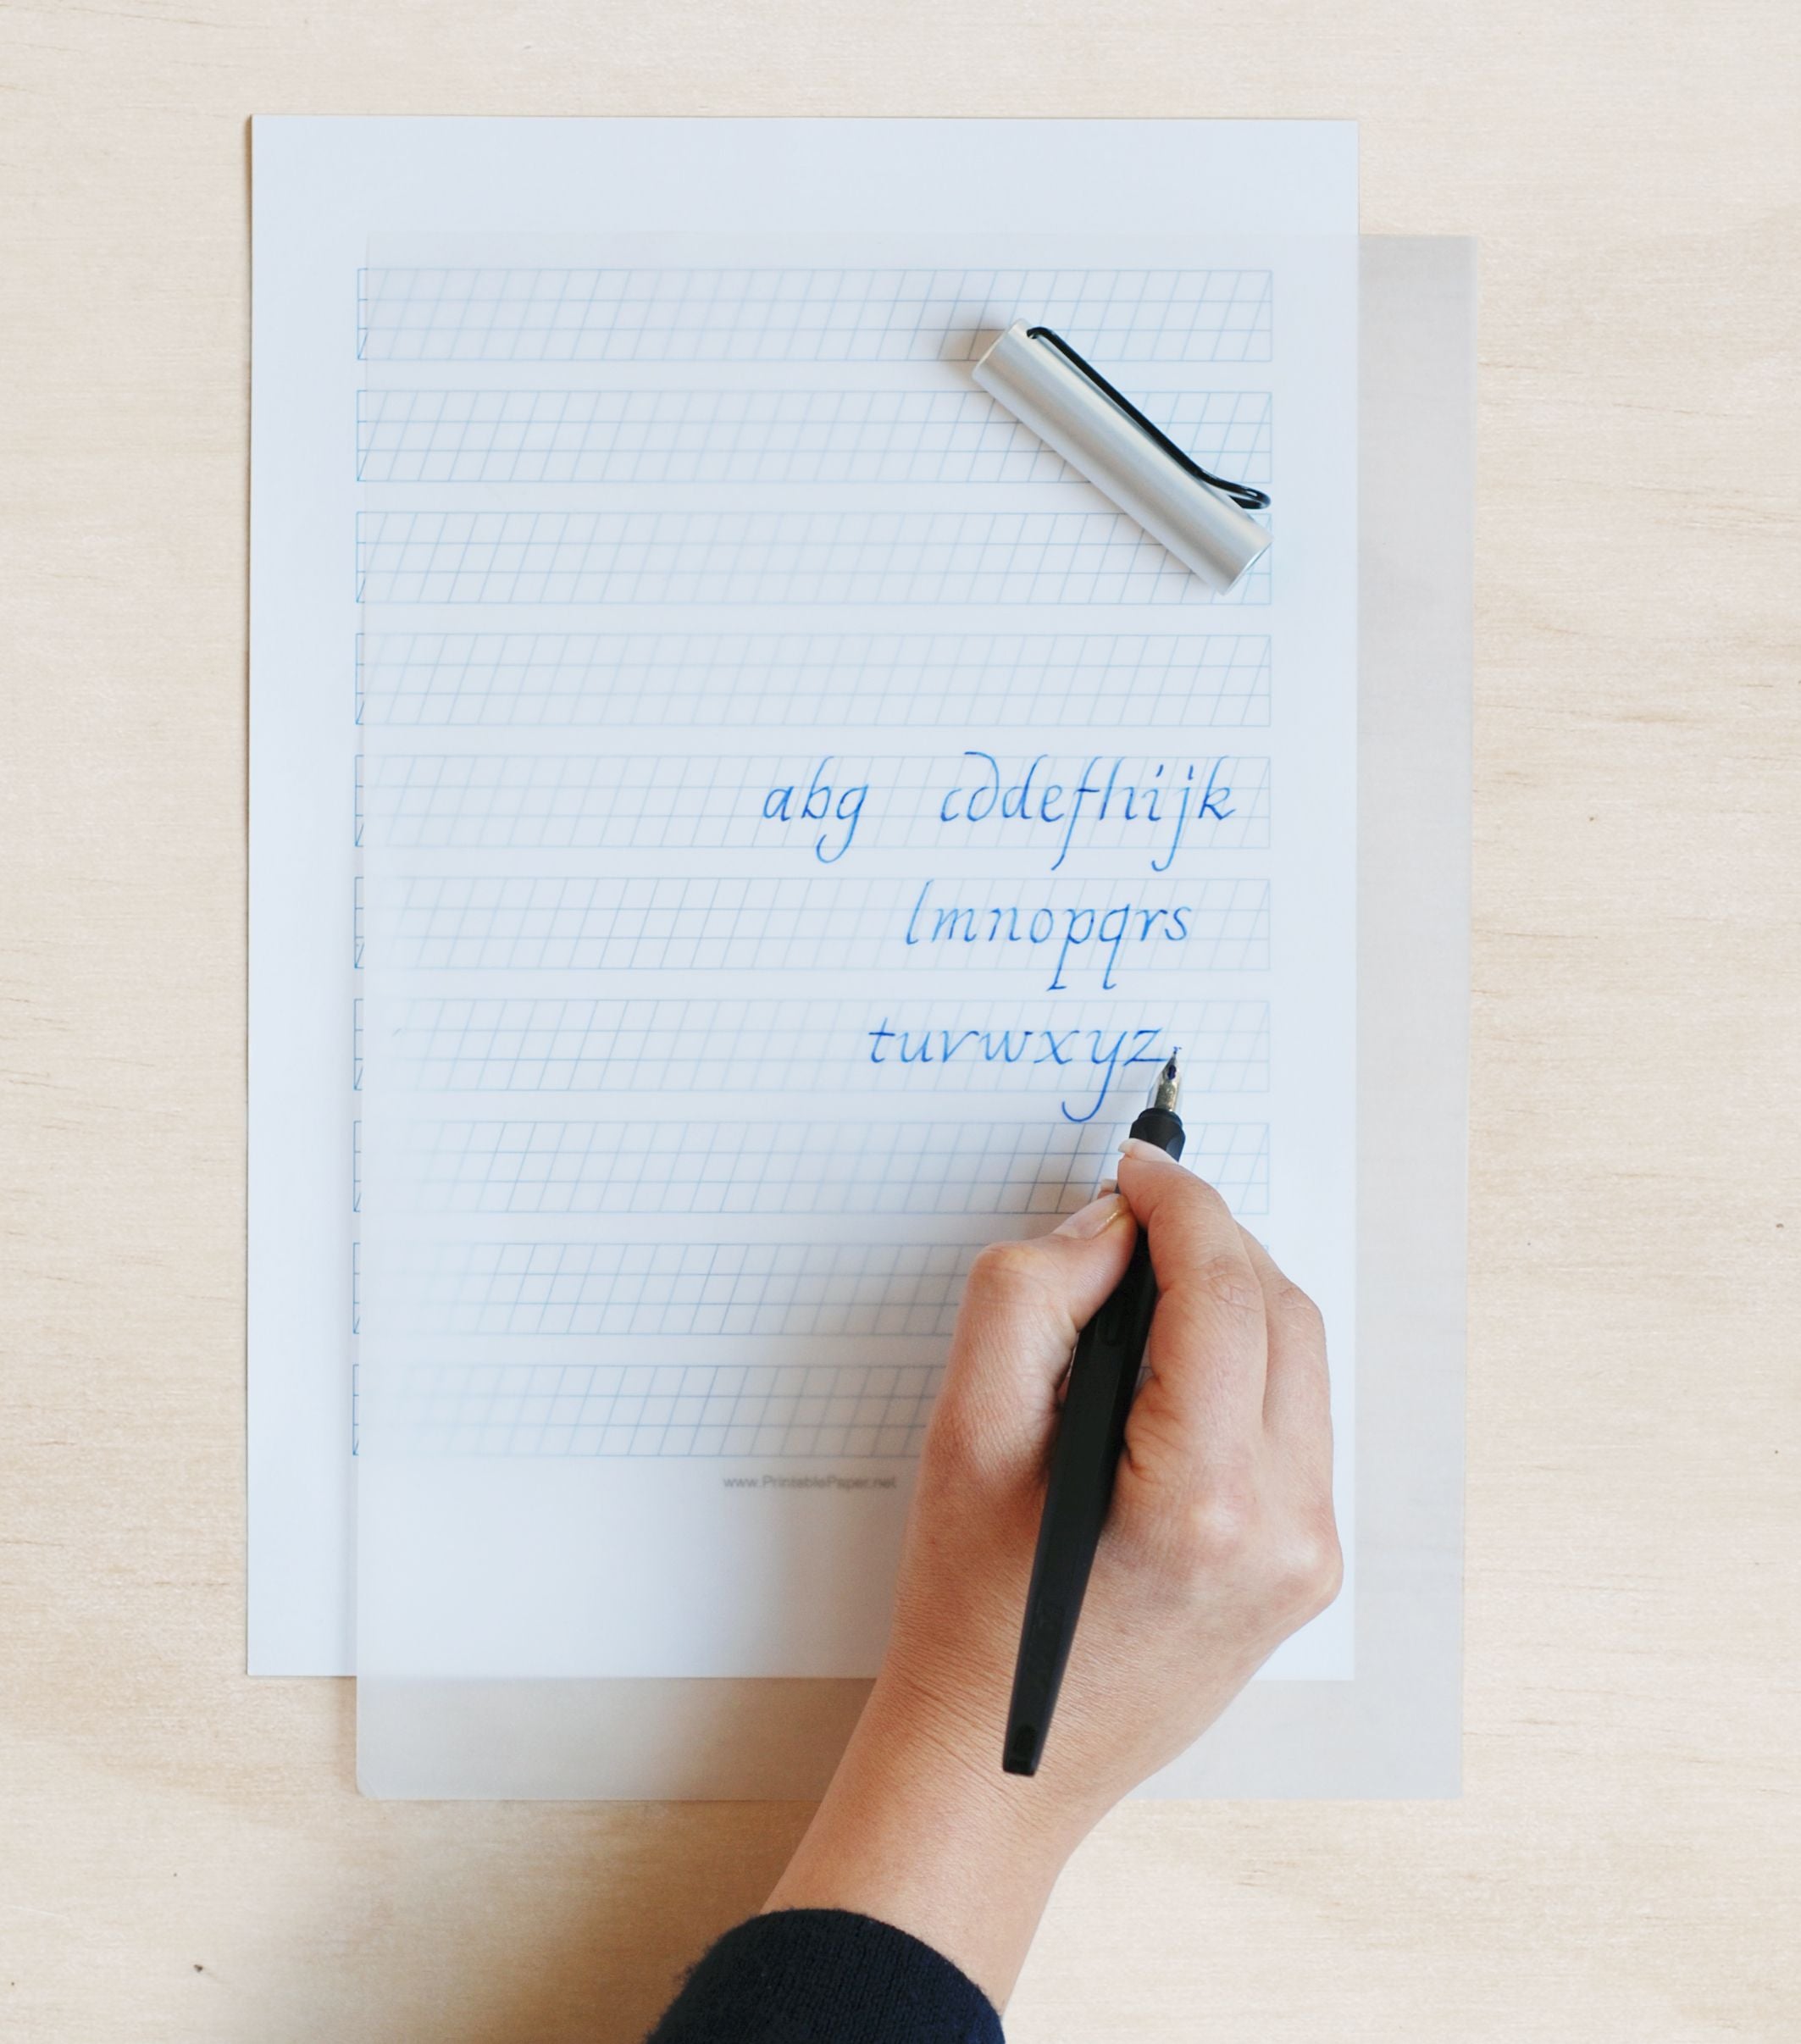 abg cddefhijk
lmnopqrs
tuvwxyz
www.PrintablePaper.net